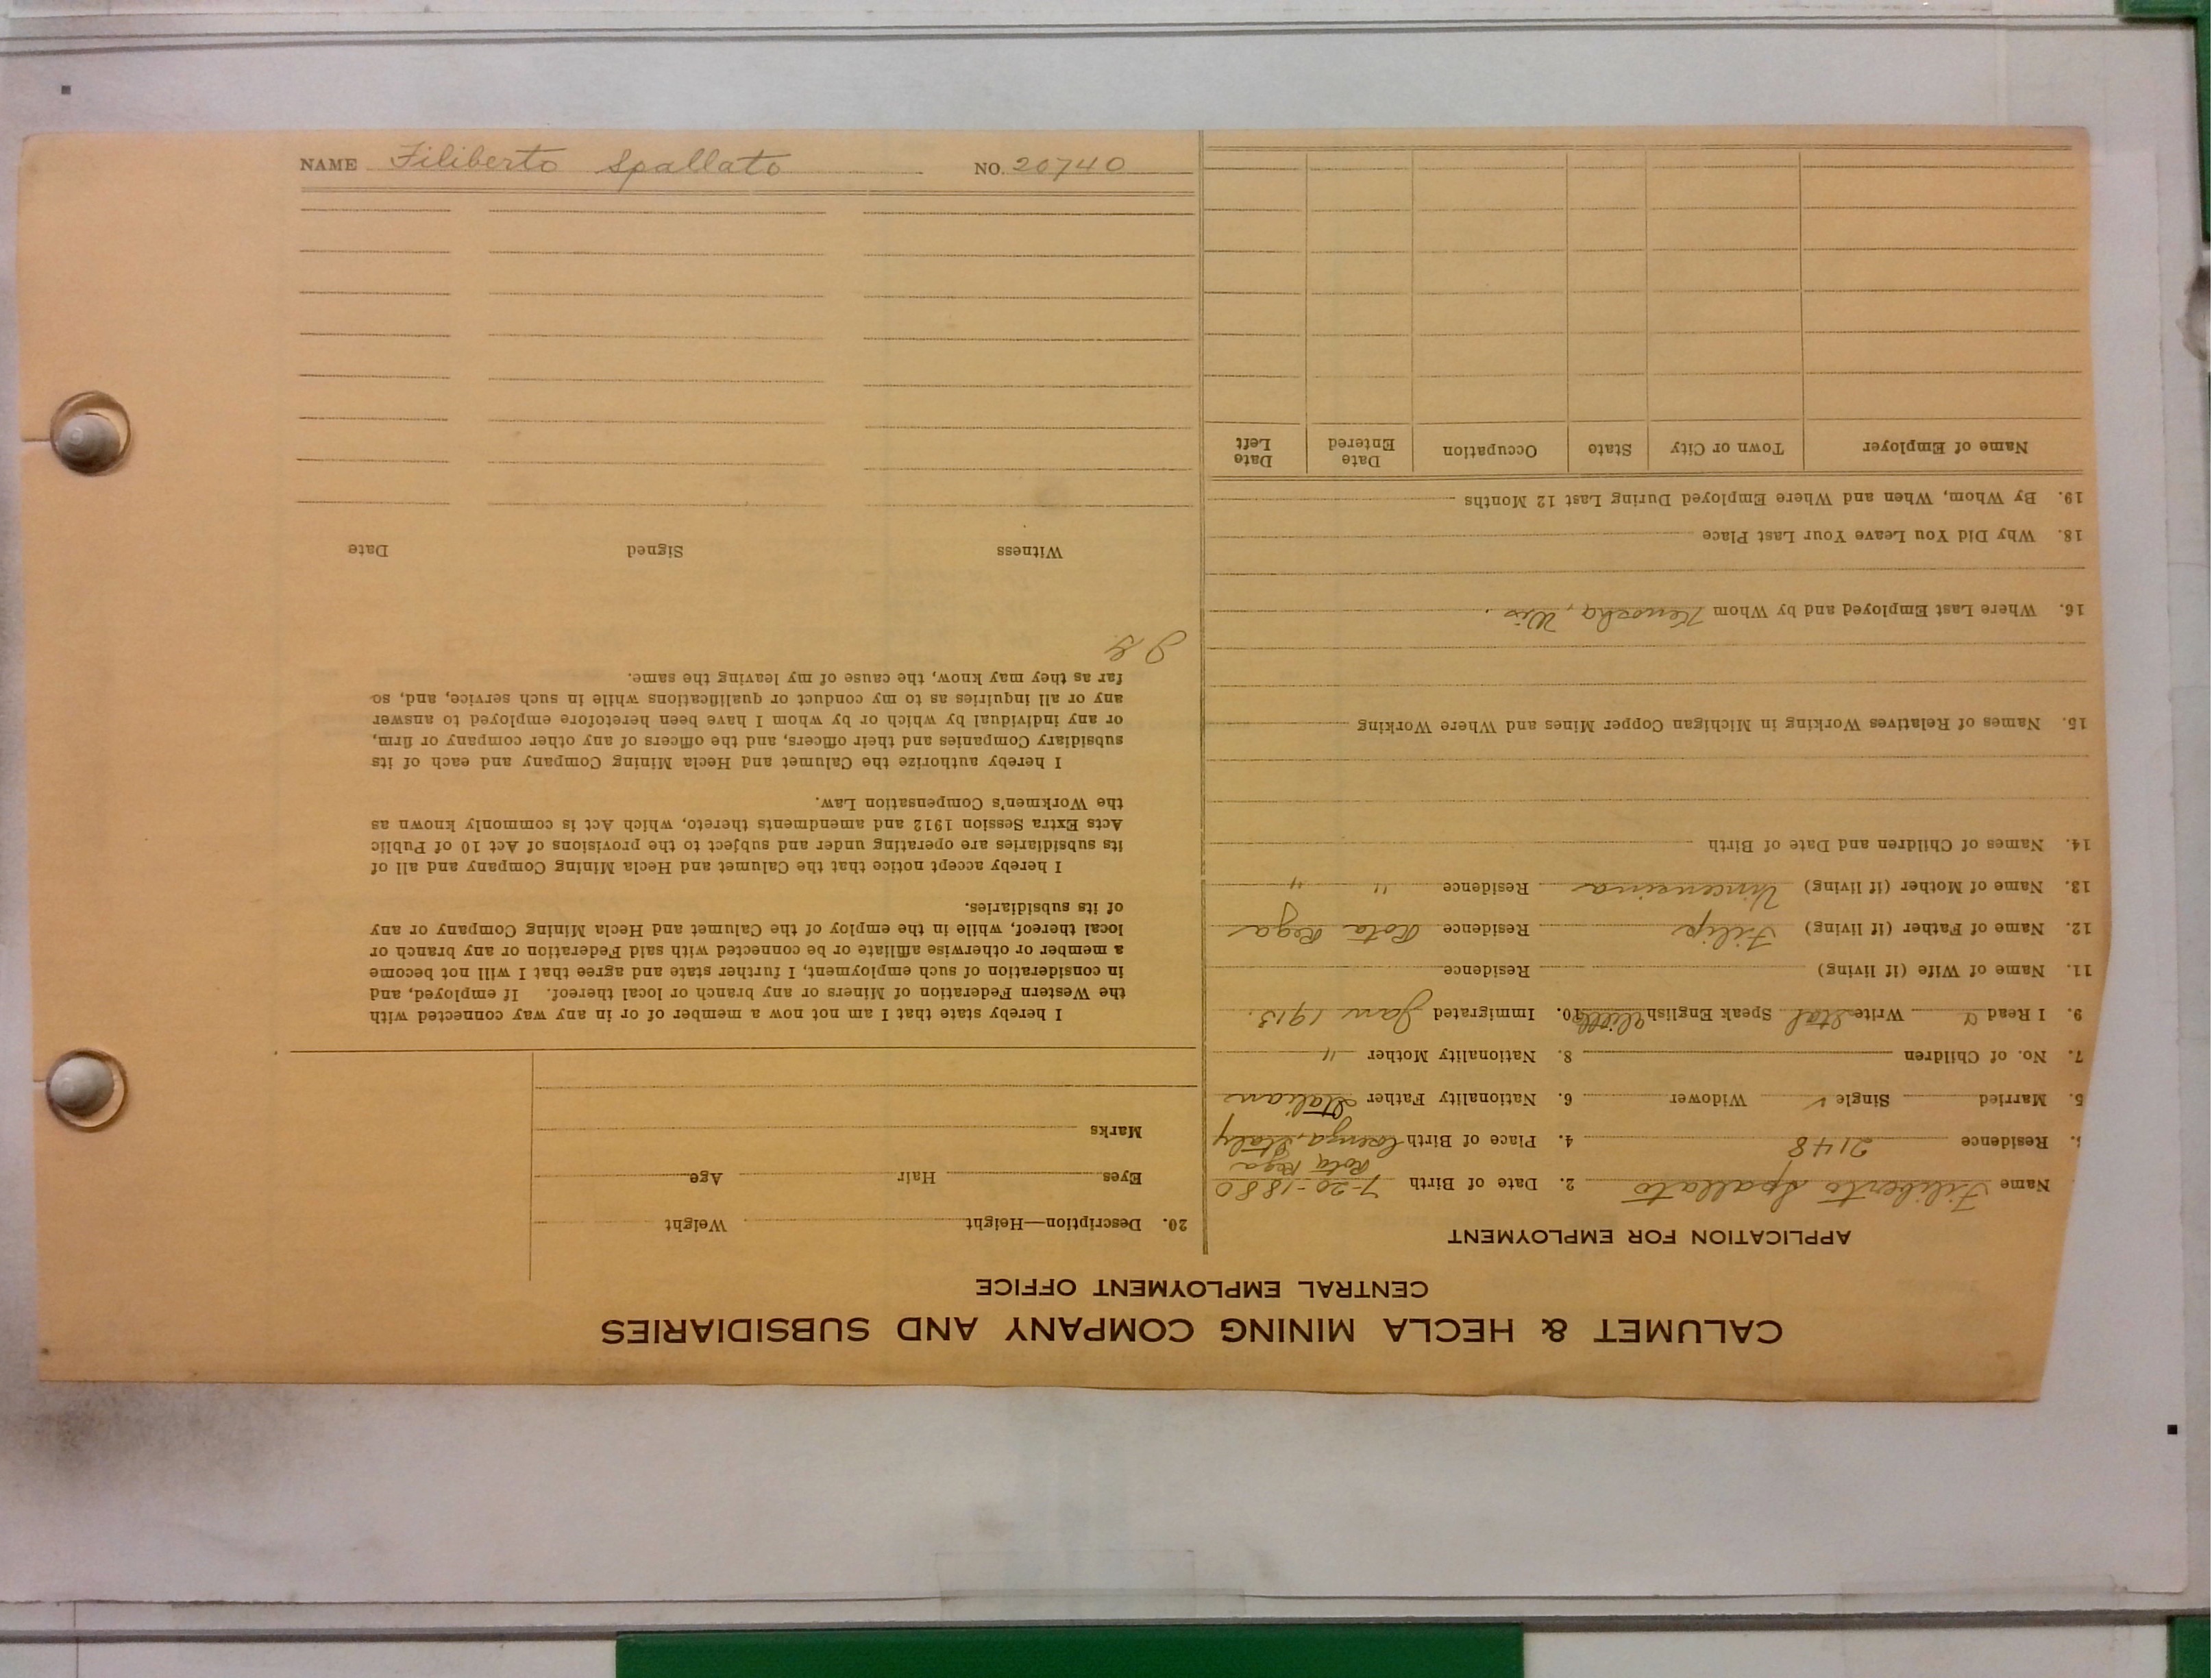 CALUMET & HECLA MINING COMPANY AND SUBSIDIARIES
CENTRAL EMPLOYMENT OFFICE
APPLICATION FOR EMPLOYMENT
Name Filiberto Spallato 2. Date of Birth 7-20-1880
Rota Rega
Residence 2148 4. Place of Birth Cosenza, Italy
5. Married Single ✓ Widower 6. Nationality Father Italian
7. No. of Children 8. Nationality Mother "
9. I Read & Write Ital Speak English little 10. Immigrated Jan 1913.
11. Name of Wife (if living) Residence
12. Name of Father (if living) Filip Residence Rota Rega
13. Name of Mother (if living) Vincencina Residence " "
14. Names of Children and Date of Birth
15. Names of Relatives Working in Michigan Copper Mines and Where Working
16. Where Last Employed and by Whom Kenosha, Wis.
18. Why Did You Leave Your Last Place
19. By Whom, When and Where Employed During Last 12 Months
Name of Employer Town or City State Occupation Date Entered Date Left
20. Description—Height Weight
Eyes Hair Age
Marks
I hereby state that I am not now a member of or in any way connected with
the Western Federation of Miners or any branch or local thereof. If employed, and
in consideration of such employment, I further state and agree that I will not become
a member or otherwise affiliate or be connected with said Federation or any branch or
local thereof, while in the employ of the Calumet and Hecla Mining Company or any
of its subsidiaries.
I hereby accept notice that the Calumet and Hecla Mining Company and all of
its subsidiaries are operating under and subject to the provisions of Act 10 of Public
Acts Extra Session 1912 and amendments thereto, which Act is commonly known as
the Workmen's Compensation Law.
I hereby authorize the Calumet and Hecla Mining Company and each of its
subsidiary Companies and their officers, and the officers of any other company or firm,
or any individual by which or by whom I have been heretofore employed to answer
any or all inquiries as to my conduct or qualifications while in such service, and, so
far as they may know, the cause of my leaving the same.
Witness Signed Date
NAME Filiberto Spallato NO. 20740